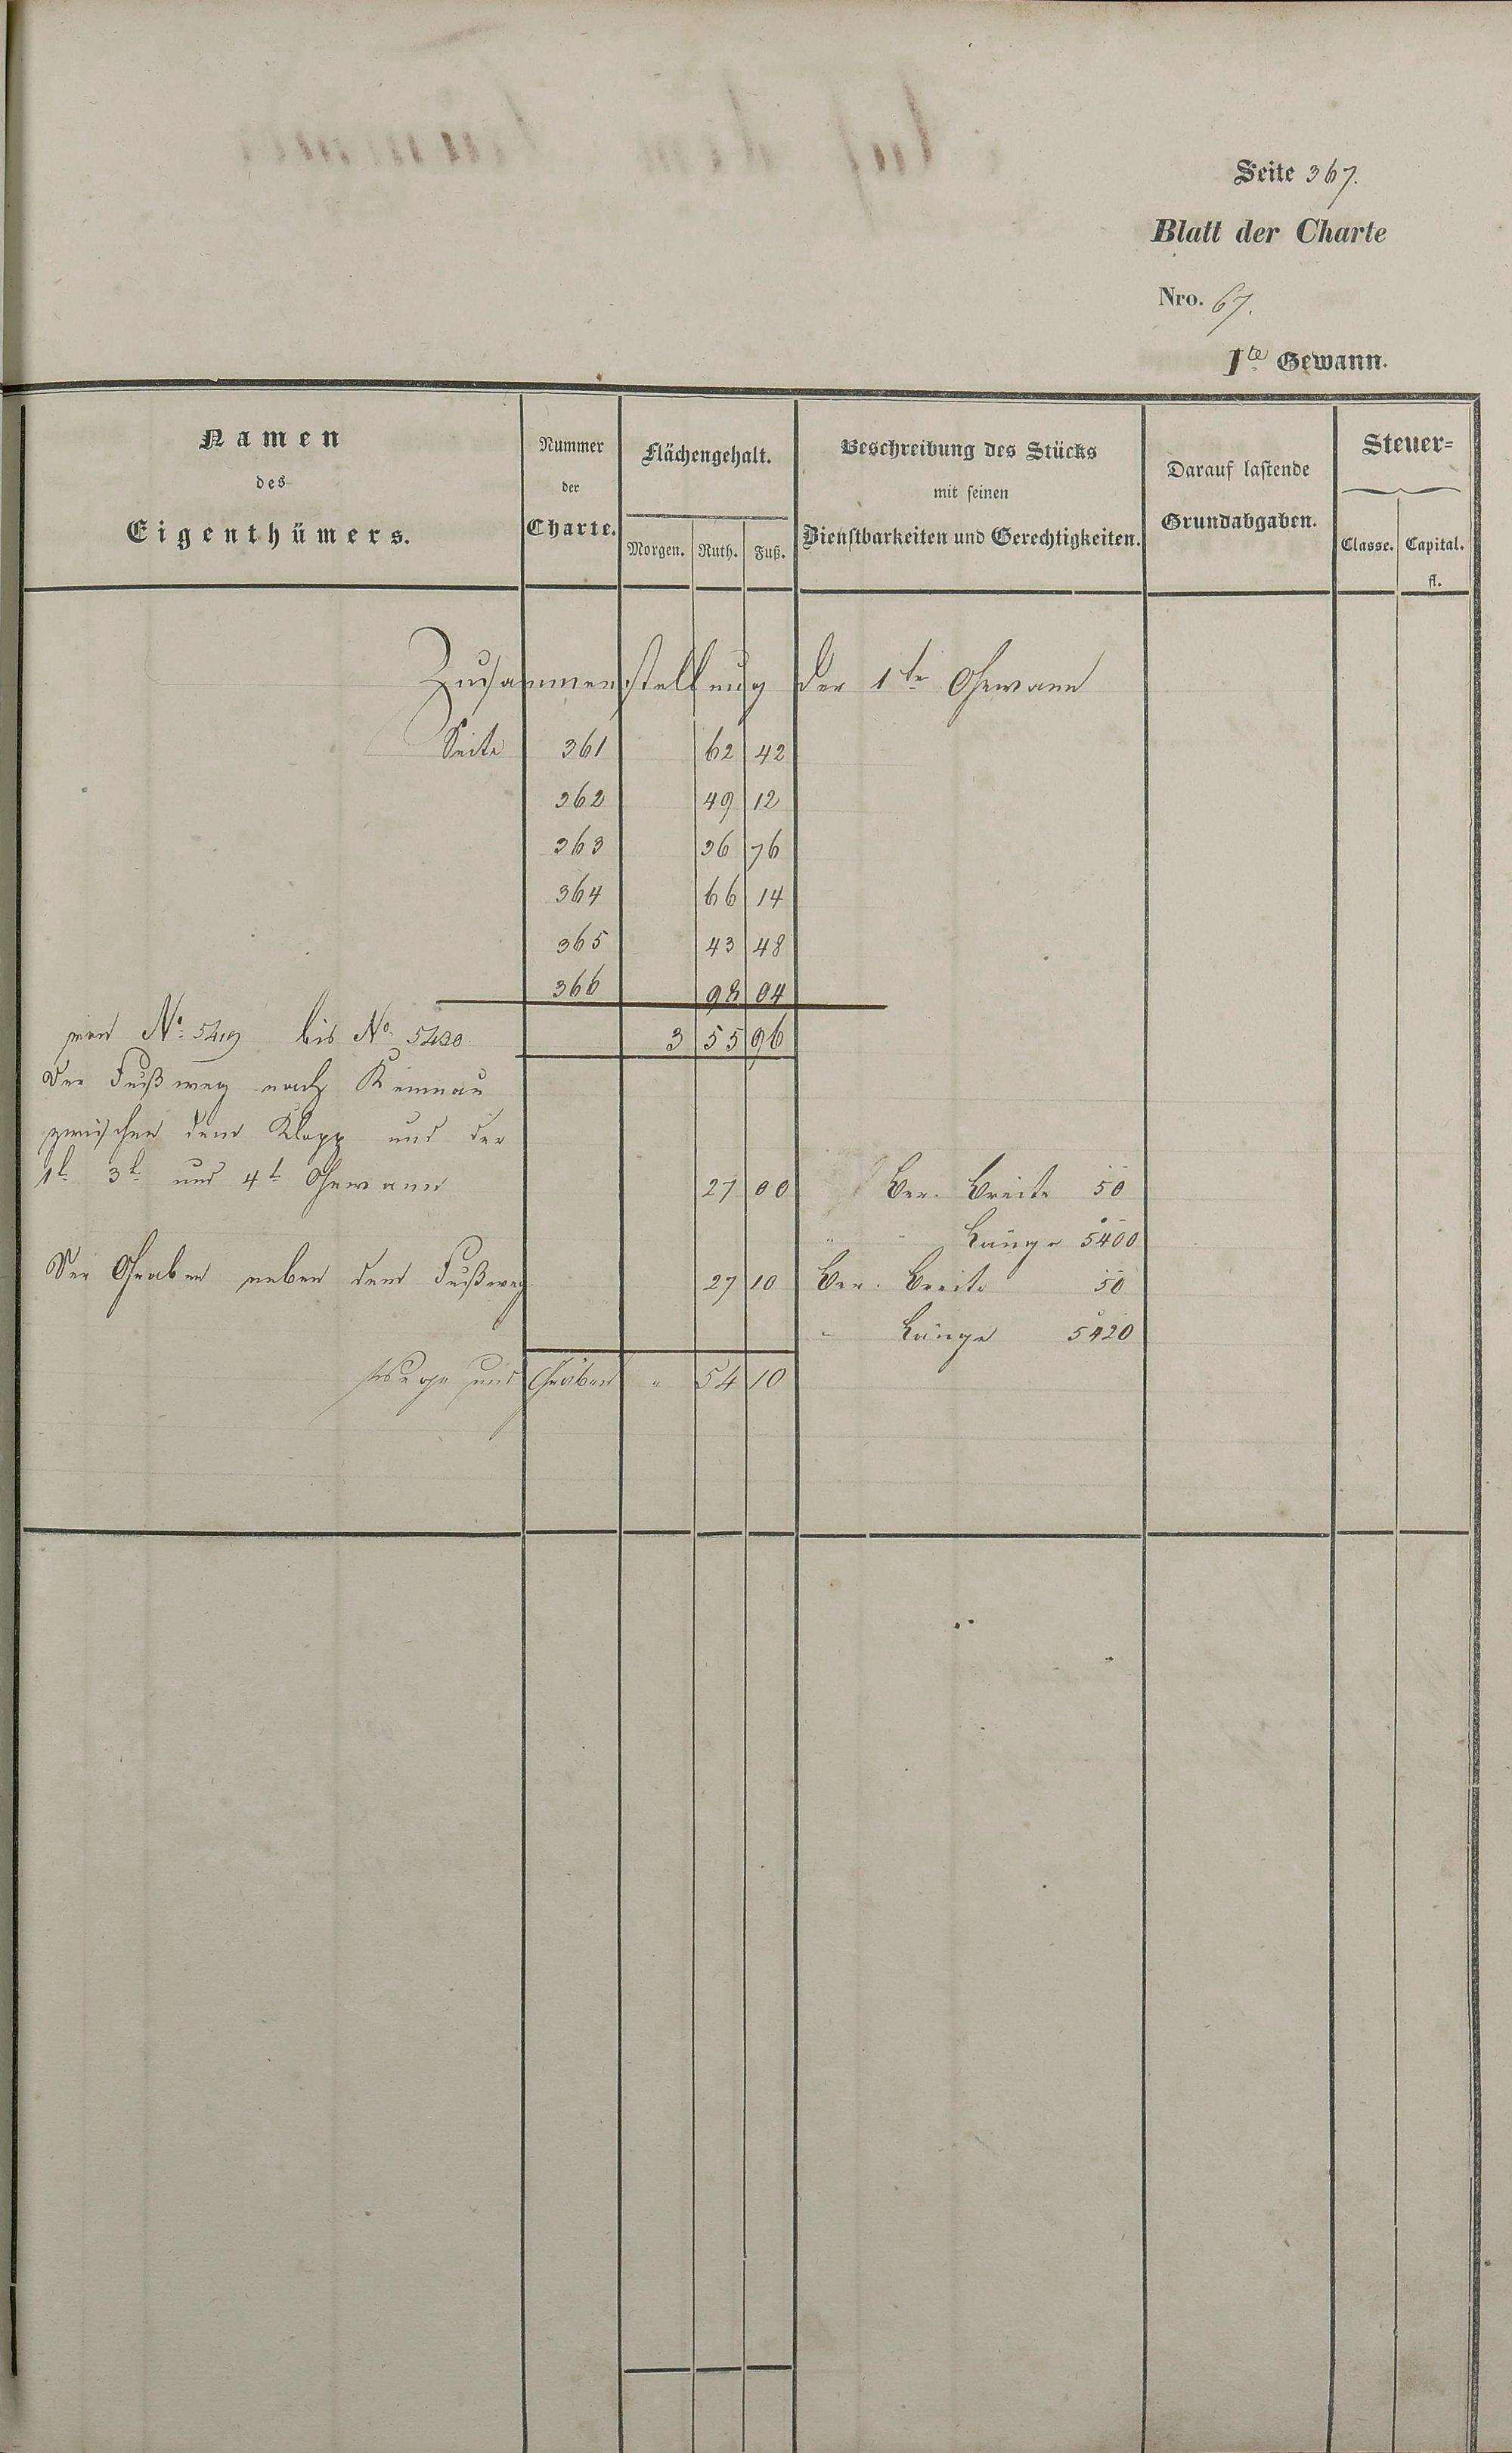 Seite 367.
Blatt der Charte
Nro. 67.
1te Gewann.
Namen des Eigenthümers.
Nummer der Charte.
Flächengehalt.
Morgen. Ruth. Fuß.
Beschreibung des Stücks mit seinen Dienstbarkeiten und Gerechtigkeiten.
Darauf lastende Grundabgaben.
Steuer-
Classe. Capital. fl.
Zusammenstellung der 1te Gewann
Seite 361 62 42
362 49 12
363 36 76
364 66 14
365 43 48
366 98 04
von No 5419 bis No 5430 3 55 96
Der Fußweg nach
zwischen dem Klopp und der
1t 3t und 4t Gewann 27 00 Ber. Breite 50
" " Länge 5400
Der Graben neben dem Fußweg 27 10 Ber. Breite 50
" Länge 5420
Wege und Gräben " 54 10